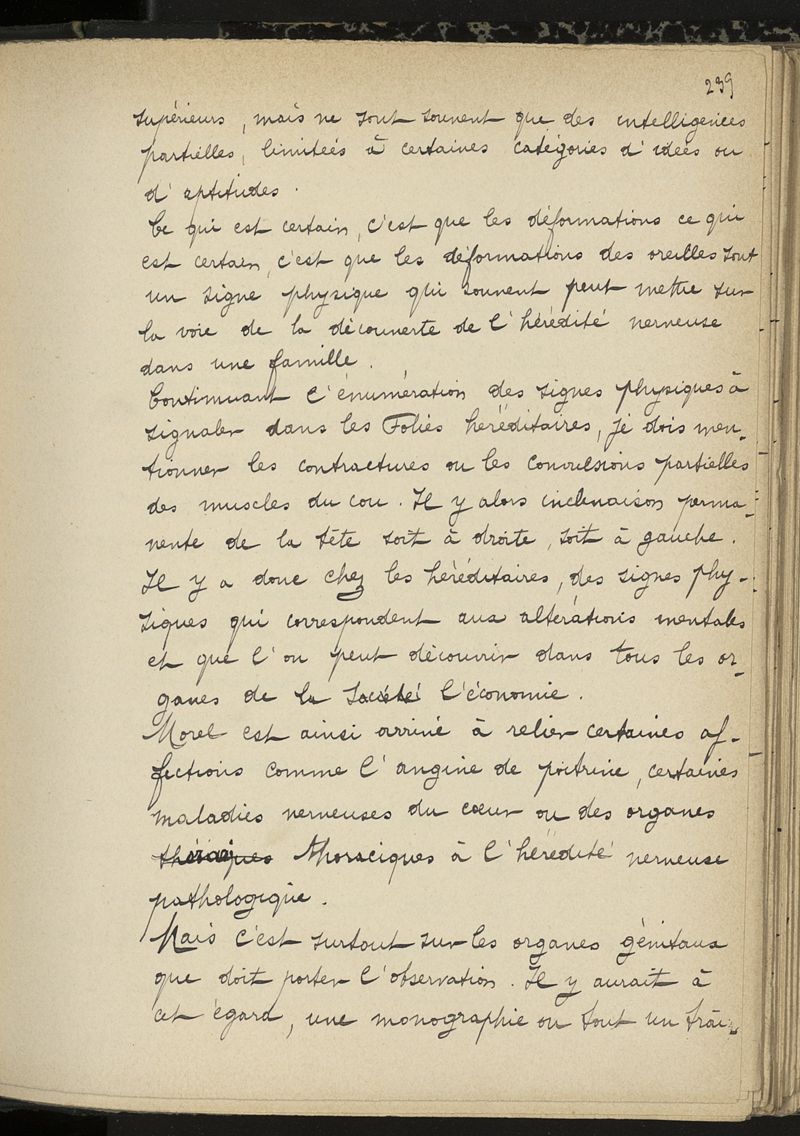 239
supérieurs, mais ne sont souvent que des intelligences
partielles, limitées à certaines catégories d'idées ou
d'aptitudes.
Ce qui est certain, c'est que les déformations ce qui
est certain, c'est que les déformations des oreilles sont
un signe physique qui souvent peut mettre sur
la voie de la découverte de l'hérédité nerveuse
dans une famille.
Continuant l'énumération des signes physiques à
signaler dans les Folies héréditaires, je dois men-
tionner les contractures ou les convulsions partielles
des muscles du cou. Il y alors inclinaison perma-
nente de la tête soit à droite, soit à gauche.
Il y a donc chez les héréditaires, des signes phy-
siques qui correspondent aux altérations mentales
et que l'on peut découvrir dans tous les or-
ganes de la société l'économie.
Morel est ainsi arrivé à relier certaines af-
fections comme l'angine de poitrine, certaines
maladies nerveuses du cœur ou des organes
thoraciques à l'hérédité nerveuse
pathologique.
Mais c'est surtout sur les organes génitaux
que doit porter l'observation. Il y aurait à
cet égard, une monographie ou tout un trai-